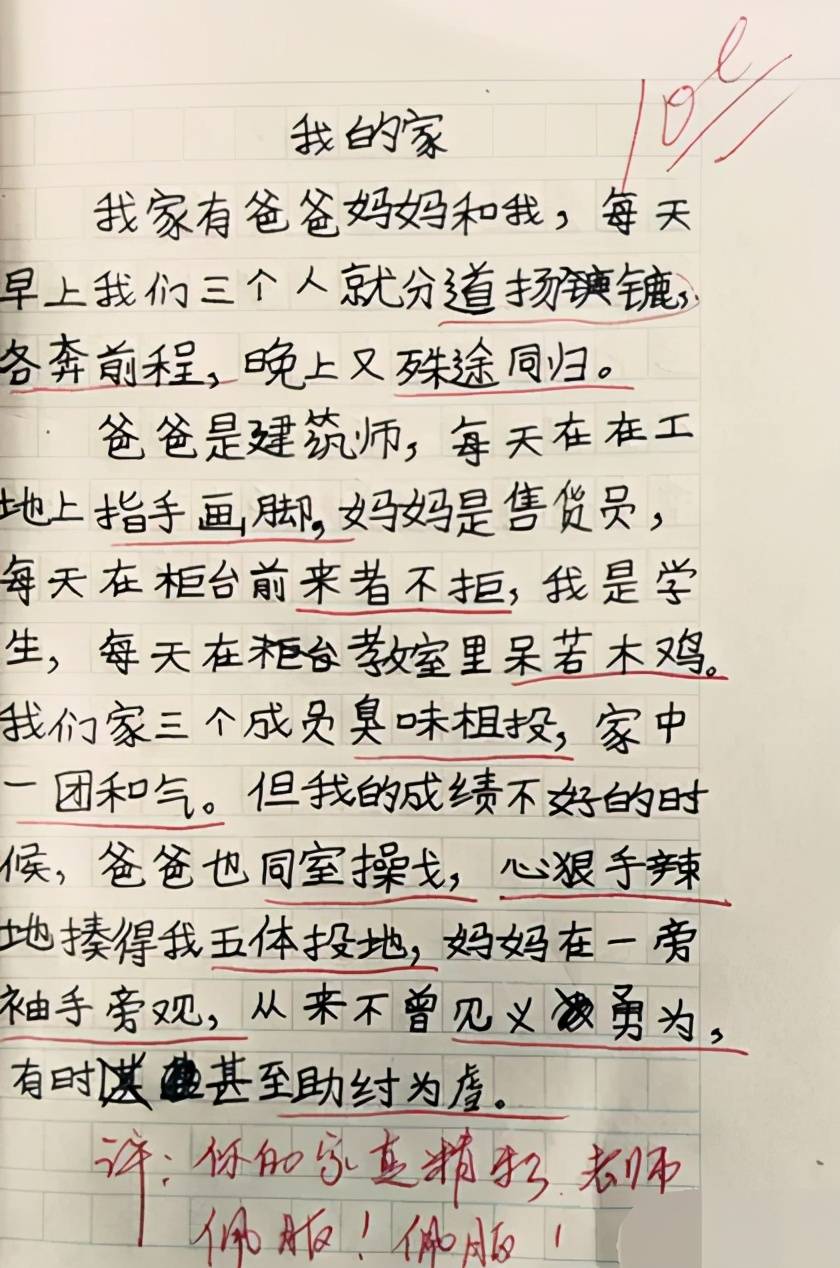 我的家
我家有爸爸妈妈和我，每天
早上我们三个人就分道扬镳，
各奔前程，晚上又殊途同归。
爸爸是建筑师，每天在在工
地上指手画脚，妈妈是售货员，
每天在柜台前来者不拒，我是学
生，每天在教室里呆若木鸡。
我们家三个成员臭味相投，家中
一团和气。但我的成绩不好的时
候，爸爸也同室操戈，心狠手辣
地揍得我五体投地，妈妈在一旁
袖手旁观，从来不曾见义勇为，
有时甚至助纣为虐。
评：你的家真精彩.老师
佩服！佩服！